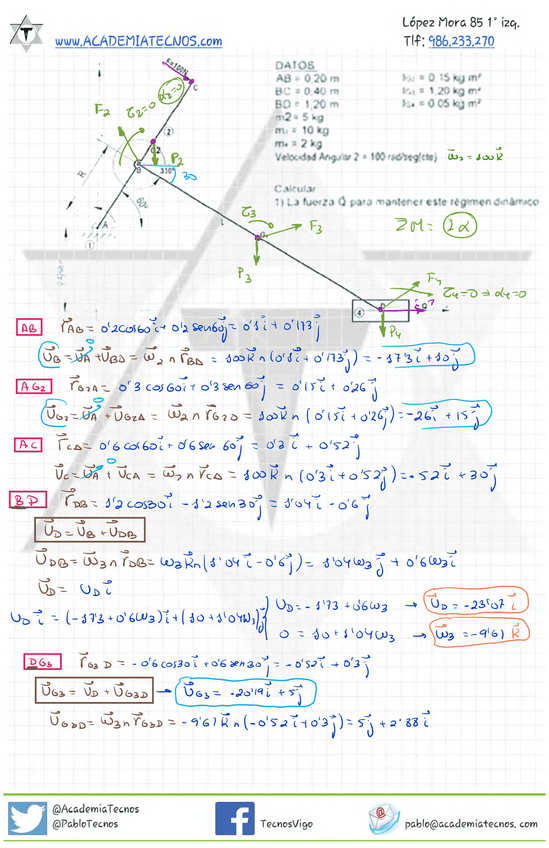 López Mora 85 1º izq.
www.ACADEMIATECNOS.com
Tlf: 986.233.270
DATOS
AB = 0,20 m
BC = 0,40 m
BD = 1,20 m
m2 = 5 kg
= 10 kg
= 2 kg
0,15 kg m²
1,20 kg m²
0.05 kg m²
Velocidad Angular 2 = 100 rad/seg(cte) ω⃗₂ = 100k⃗
Calcular
1) La fuerza Q para mantener este régimen dinámico
ΣM = Iα
F=100N
C
α₂=0
τ₂=0
F₂
(2)
G2
P₂
B
330º
30
R
A
1
L
τ₃
G₃
F₃
P₃
F₄
τ₄=0 ⇒ α₄=0
4
D
P₄
AB r⃗AB = 0'2cos60i⃗ + 0'2sen60j⃗ = 0'1i⃗ + 0'173j⃗
v⃗B = v⃗A + v⃗BA = ω⃗₂ ∧ r⃗BA = 100k⃗ ∧ (0'1i⃗ + 0'173j⃗) = -17'3i⃗ + 10j⃗
AG2 r⃗G2A = 0'3cos60i⃗ + 0'3sen60j⃗ = 0'15i⃗ + 0'26j⃗
v⃗G2 = v⃗A + v⃗G2A = ω⃗₂ ∧ r⃗G2A = 100k⃗ ∧ (0'15i⃗ + 0'26j⃗) = -26i⃗ + 15j⃗
AC r⃗CA = 0'6cos60i⃗ + 0'6sen60j⃗ = 0'3i⃗ + 0'52j⃗
v⃗C = v⃗A + v⃗CA = ω⃗₂ ∧ r⃗CA = 100k⃗ ∧ (0'3i⃗ + 0'52j⃗) = -52i⃗ + 30j⃗
BD r⃗DB = 1'2cos30i⃗ - 1'2sen30j⃗ = 1'04i⃗ - 0'6j⃗
v⃗D = v⃗B + v⃗DB
v⃗DB = ω⃗₃ ∧ r⃗DB = ω₃k⃗ ∧ (1'04i⃗ - 0'6j⃗) = 1'04ω₃j⃗ + 0'6ω₃i⃗
v⃗D = vD i⃗
vD i⃗ = (-17'3 + 0'6ω₃)i⃗ + (10 + 1'04ω₃)j⃗
vD = -17'3 + 0'6ω₃ → v⃗D = -23'07i⃗
0 = 10 + 1'04ω₃ → ω⃗₃ = -9'61k⃗
DG3 r⃗G3D = -0'6cos30i⃗ + 0'6sen30j⃗ = -0'52i⃗ + 0'3j⃗
v⃗G3 = v⃗D + v⃗G3D → v⃗G3 = -20'19i⃗ + 5j⃗
v⃗G3D = ω⃗₃ ∧ r⃗G3D = -9'61k⃗ ∧ (-0'52i⃗ + 0'3j⃗) = 5j⃗ + 2'88i⃗
@AcademiaTecnos
@PabloTecnos
TecnosVigo
pablo@academiatecnos.com